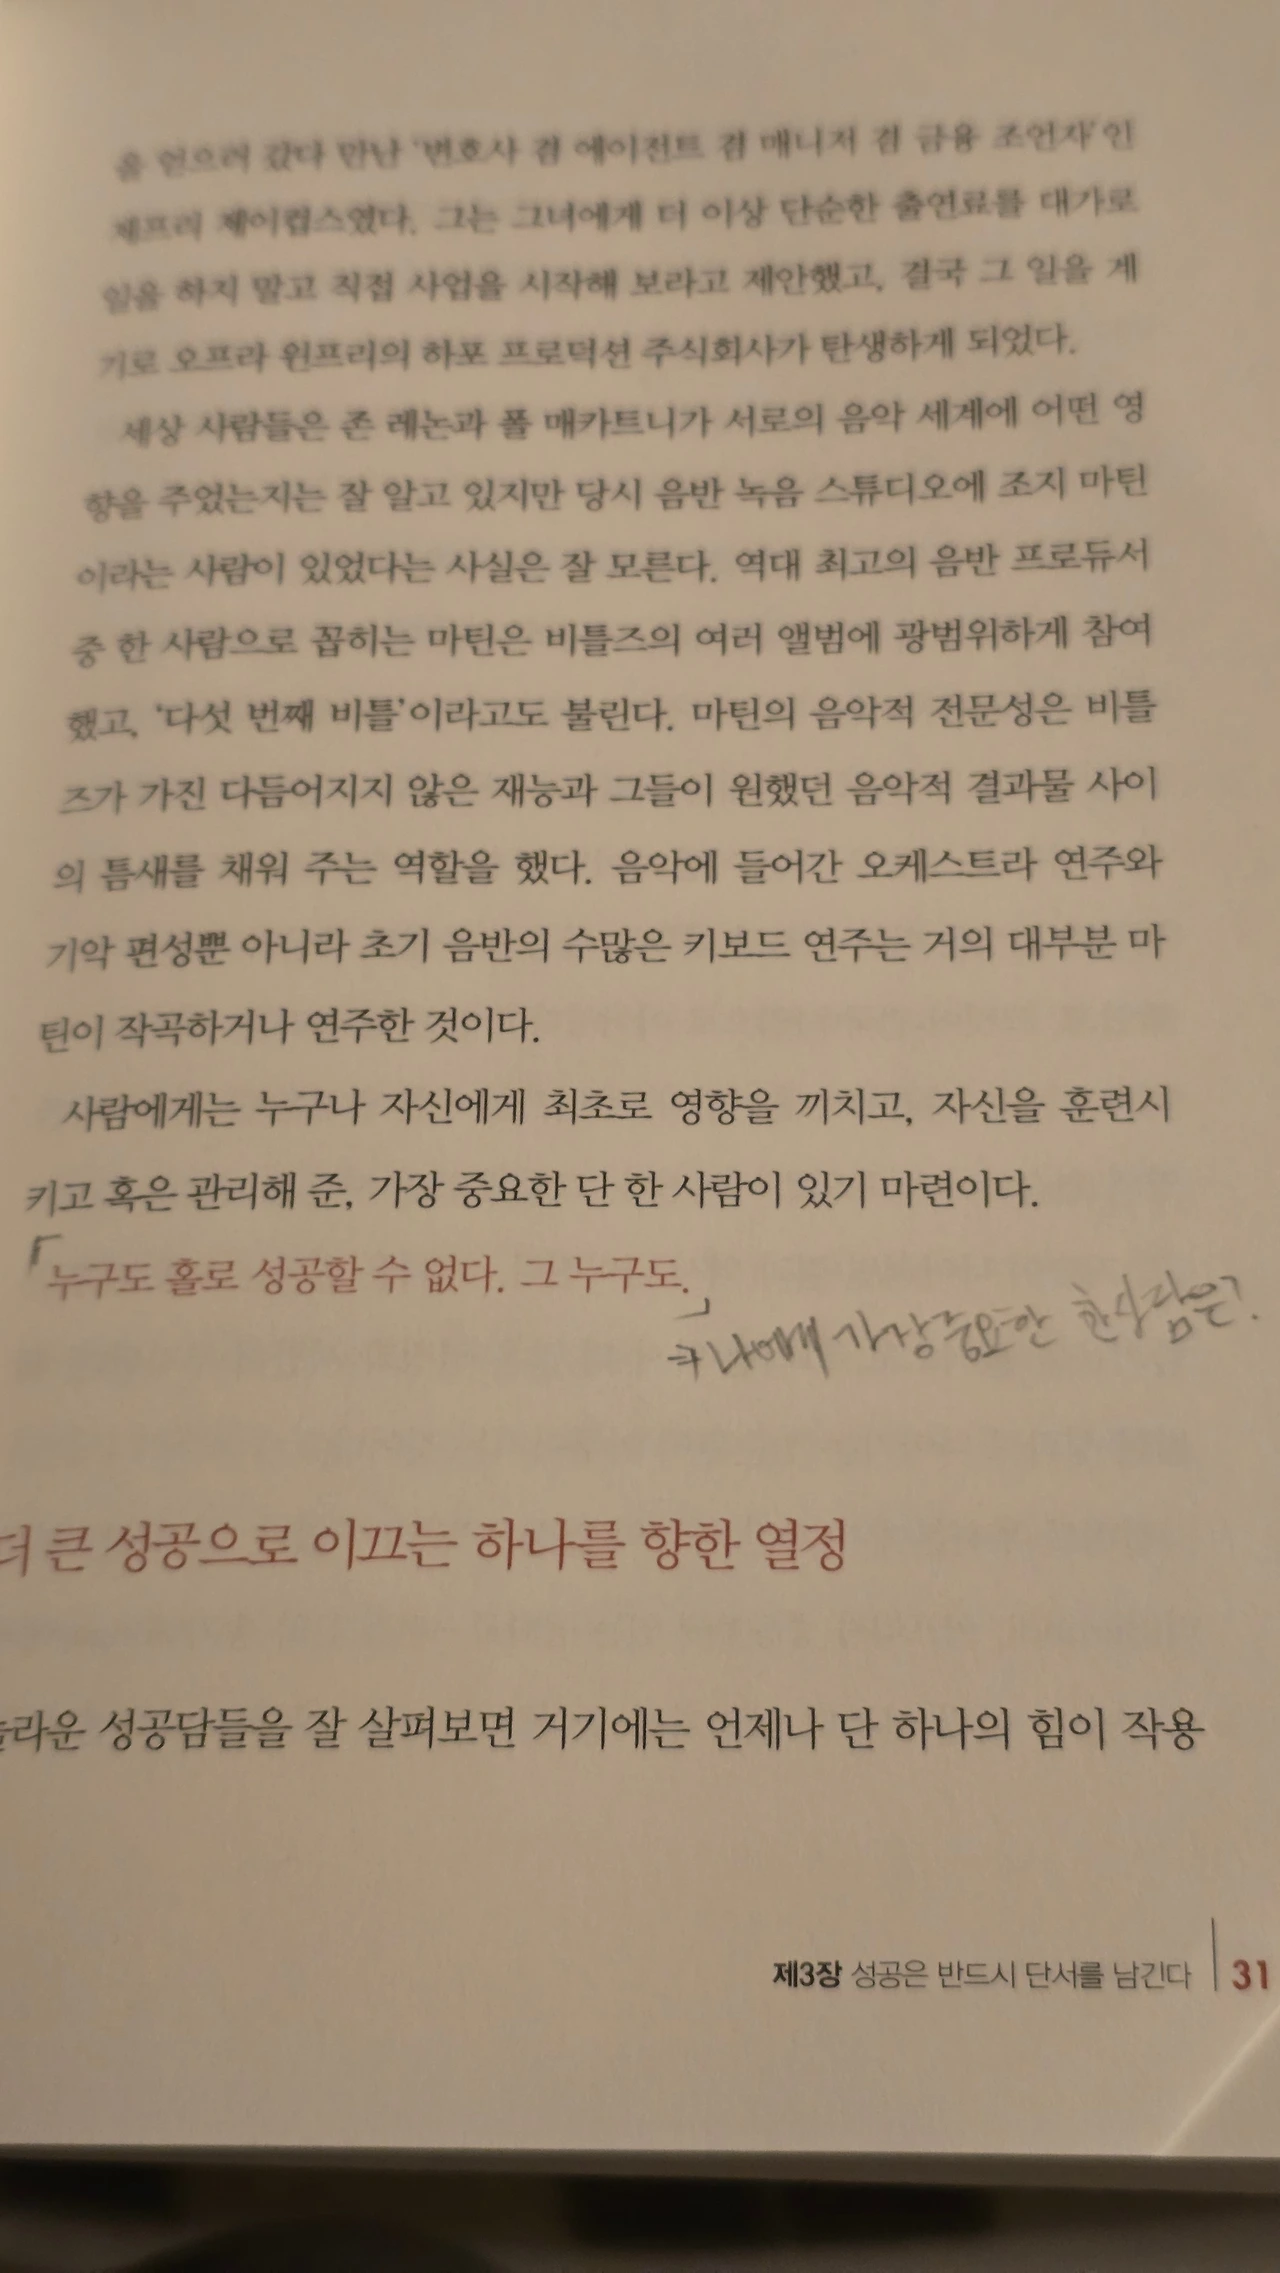 을 얻으러 갔다 만난 '변호사 겸 에이전트 겸 매니저 겸 금융 조언자'인
제프리 제이컵스였다. 그는 그녀에게 더 이상 단순한 출연료를 대가로
일을 하지 말고 직접 사업을 시작해 보라고 제안했고, 결국 그 일을 계
기로 오프라 윈프리의 하포 프로덕션 주식회사가 탄생하게 되었다.
세상 사람들은 존 레논과 폴 매카트니가 서로의 음악 세계에 어떤 영
향을 주었는지는 잘 알고 있지만 당시 음반 녹음 스튜디오에 조지 마틴
이라는 사람이 있었다는 사실은 잘 모른다. 역대 최고의 음반 프로듀서
중 한 사람으로 꼽히는 마틴은 비틀즈의 여러 앨범에 광범위하게 참여
했고, '다섯 번째 비틀'이라고도 불린다. 마틴의 음악적 전문성은 비틀
즈가 가진 다듬어지지 않은 재능과 그들이 원했던 음악적 결과물 사이
의 틈새를 채워 주는 역할을 했다. 음악에 들어간 오케스트라 연주와
기악 편성뿐 아니라 초기 음반의 수많은 키보드 연주는 거의 대부분 마
틴이 작곡하거나 연주한 것이다.
사람에게는 누구나 자신에게 최초로 영향을 끼치고, 자신을 훈련시
키고 혹은 관리해 준, 가장 중요한 단 한 사람이 있기 마련이다.
「누구도 홀로 성공할 수 없다. 그 누구도.」
나에게 가장 중요한 한 사람은?
더 큰 성공으로 이끄는 하나를 향한 열정
놀라운 성공담들을 잘 살펴보면 거기에는 언제나 단 하나의 힘이 작용
제3장 성공은 반드시 단서를 남긴다 31